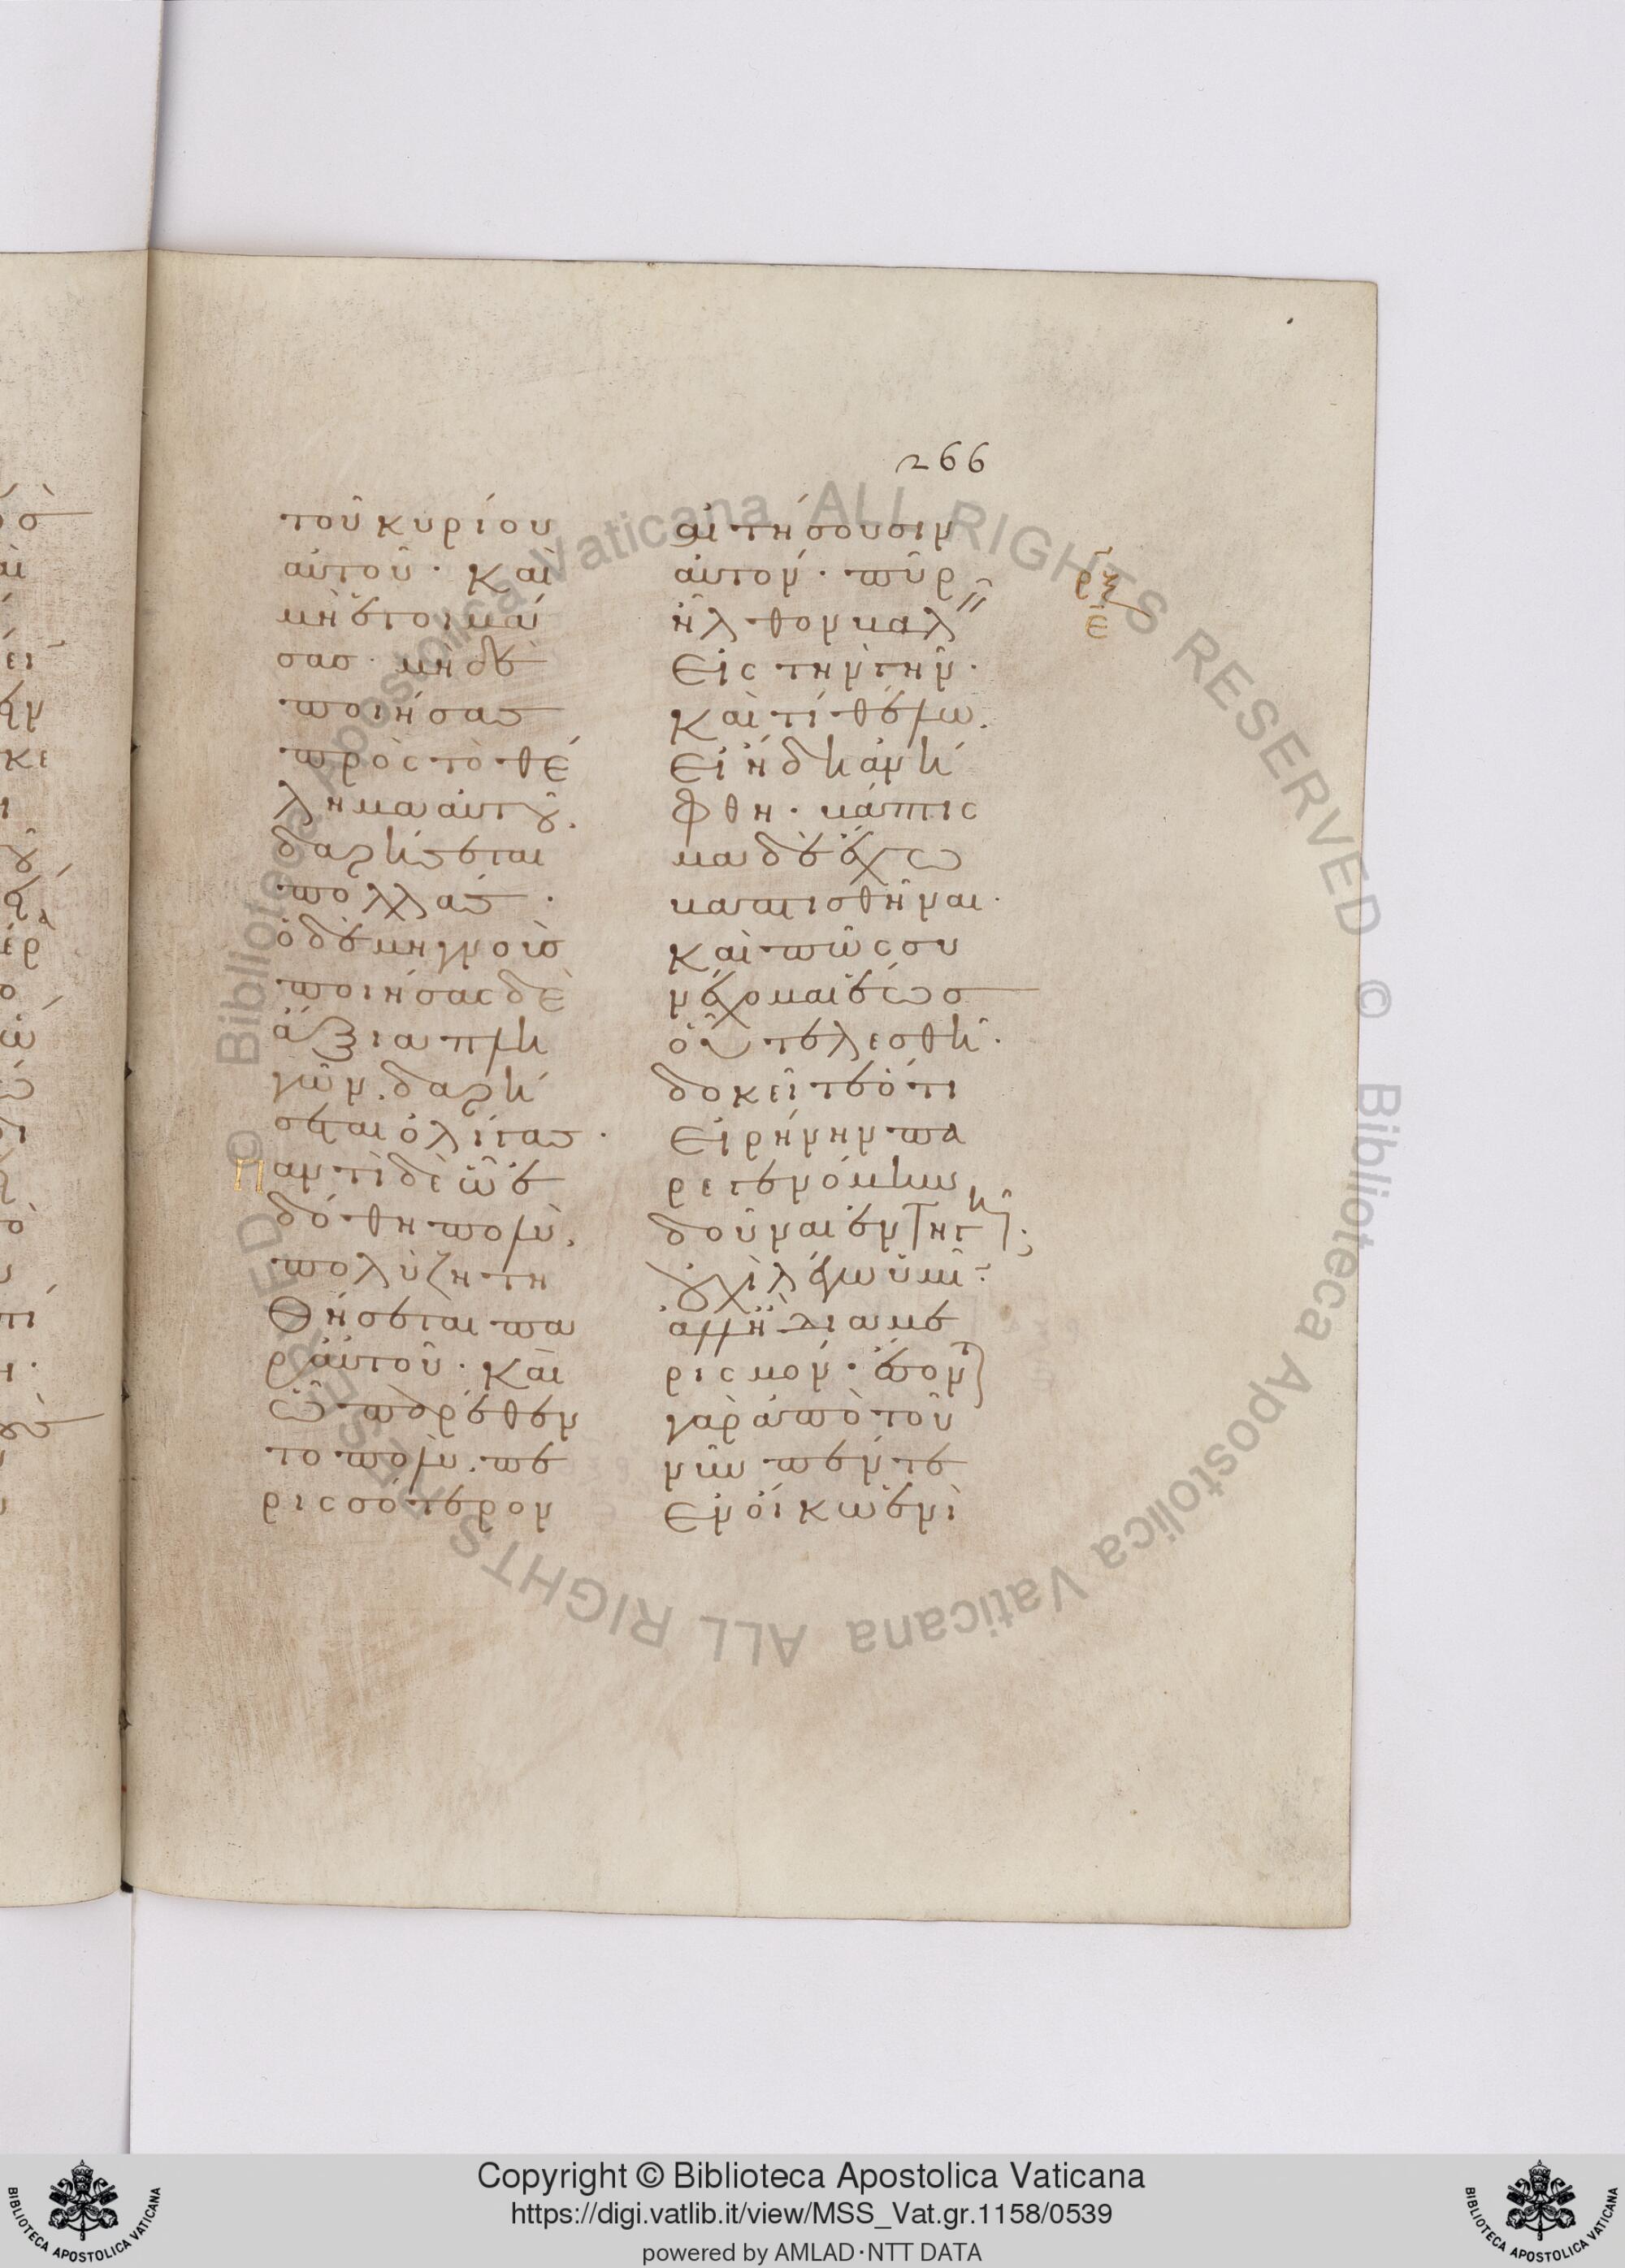 266
τοῦ κυρίου
αὐτοῦ· καὶ
μὴ ἑτοιμά
σας· μηδὲ
ποιήσας
πρὸς τὸ θέ
λημα αὐτοῦ.
δαρήσεται
πολλάς·
ὁ δὲ μὴ γνοὺς
ποιήσας δὲ
ἄξια πλη
γῶν. δαρή
σεται ὀλίγας·
Παντὶ δὲ ὧ ἐ
δόθη πολύ.
πολὺ ζητη
θήσεται πα
ρ αὐτοῦ· καὶ
ὧ παρέθεν
το πολύ. πε
ρισσότερον
αἰτήσουσιν
αὐτόν· πῦρ
ἦλθον βαλεῖν
εἰς τὴν γῆν·
καὶ τί θέλω.
εἰ ἤδη ἀνή
φθη· βάπτισ
μα δὲ ἔχω
βαπτισθῆναι·
καὶ πῶς συ
νέχομαι ἕως
οὗ τελεσθῆ·
δοκεῖτε ὅτι
εἰρήνην πα
ρεγενόμην
δοῦναι ἐν τῆ γῆ;
οὐχὶ λέγω ὑμῖν·
ἀλλ' ἢ διαμε
ρισμόν· ἔσονται
γὰρ ἀπὸ τοῦ
νῦν πέντε
ἐν οἴκω ἑνὶ
ε
Copyright © Biblioteca Apostolica Vaticana
https://digi.vatlib.it/view/MSS_Vat.gr.1158/0539
powered by AMLAD·NTT DATA
BIBLIOTECA APOSTOLICA VATICANA
BIBLIOTECA APOSTOLICA VATICANA
© Biblioteca Apostolica Vaticana ALL RIGHTS RESERVED © Biblioteca Apostolica Vaticana ALL RIGHTS RESERVED